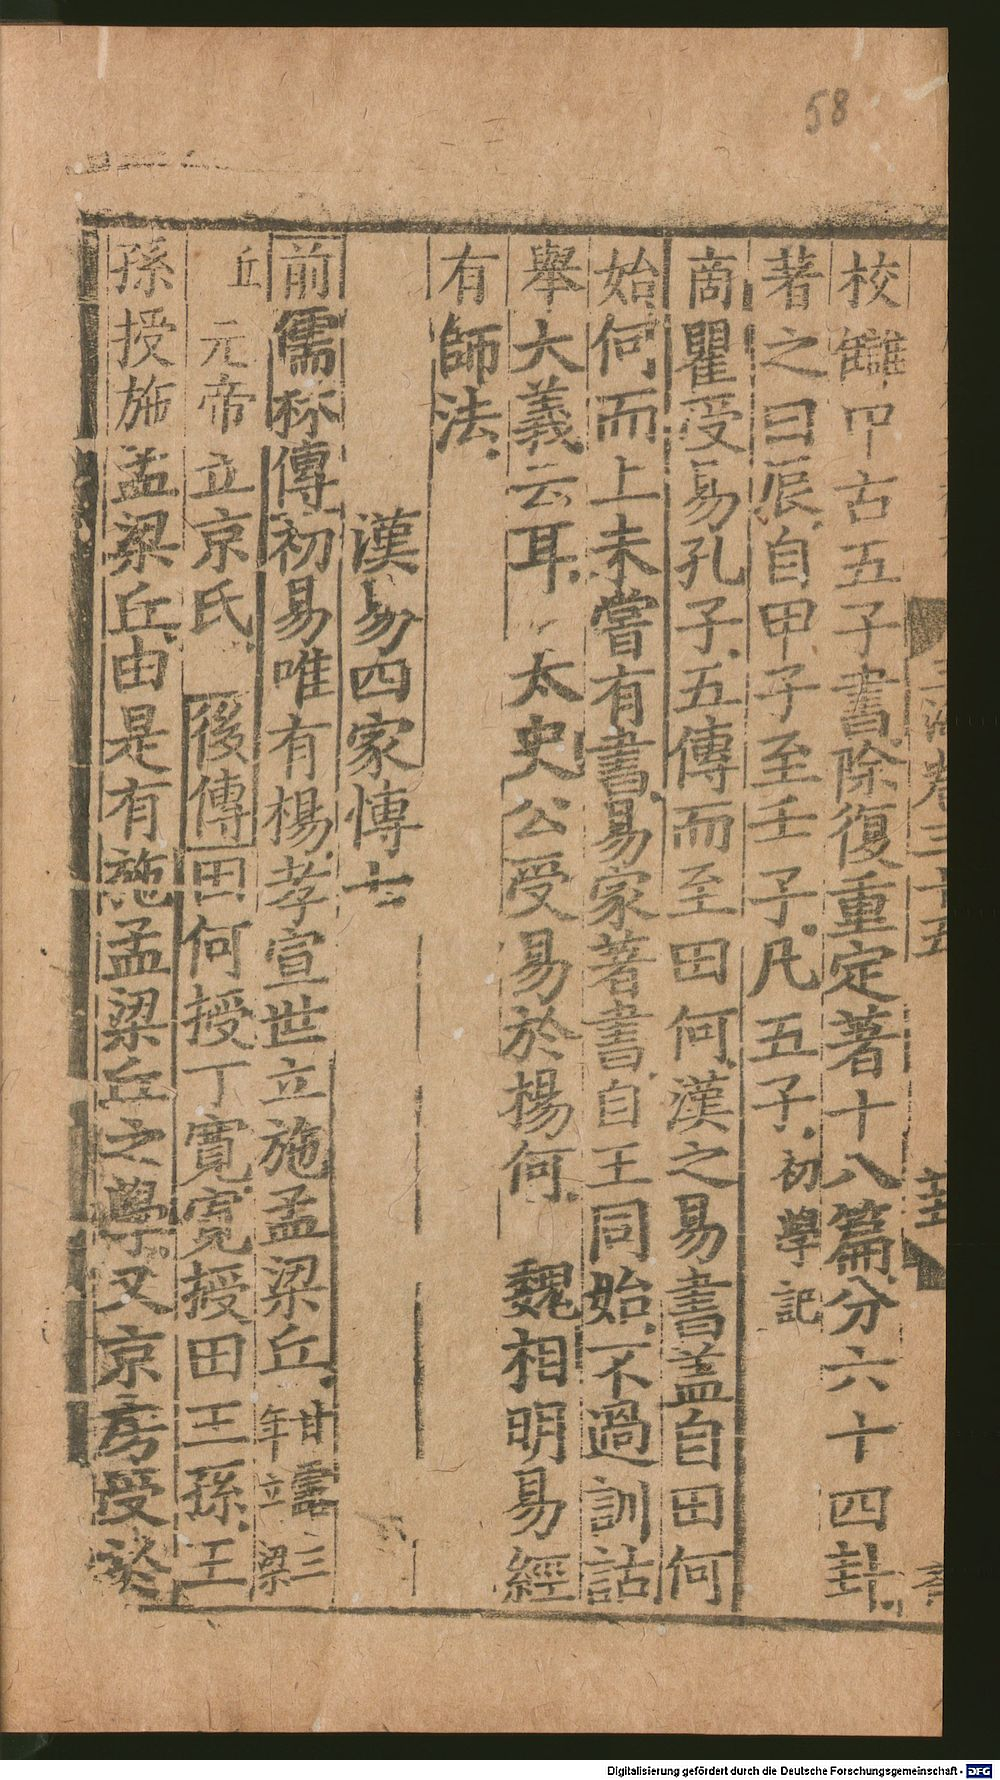 58
校讎中古五子書除復重定著十八篇分六十四卦
著之曰辰自甲子至壬子凡五子初學記
商瞿受易孔子五傳而至田何漢之易書盖自田何
始何而上未嘗有書易家著書自王同始不過訓詁
舉大義云耳 太史公受易於楊何 魏相明易經
有師法
漢易四家傳七
前儒林傳初易唯有楊孝宣世立施孟梁丘甘露三年立梁
丘 元帝立京氏 後傳田何授丁寬寬授田王孫王
孫授施孟梁丘由是有施孟梁丘之學又京房受
卷三十五
Digitalisierung gefördert durch die Deutsche Forschungsgemeinschaft - DFG